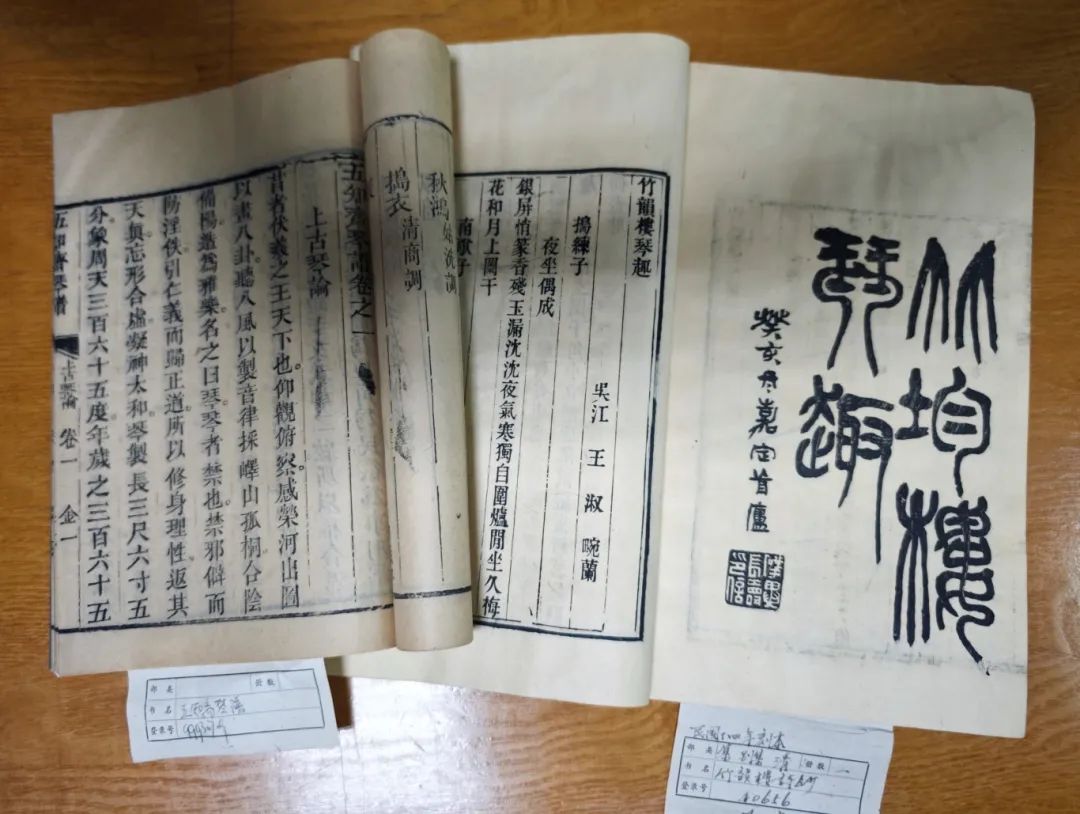 竹均樓
琴趣
癸亥冬嘉定首廬
竹韻樓琴趣
吳江王淑畹蘭
搗練子
夜坐偶成
銀屏悄篆香殘玉漏沈沈夜氣寒獨自圍爐閒坐久梅
花和月上闌干
南歌子
秋鴻姑洗調
搗衣清商調
五知齋琴譜卷之一
上古琴論
昔者伏羲之王天下也。仰觀俯察。感榮河出圖
以畫八卦。聽八風以製音律。採嶧山孤桐合陰
備陽。造爲雅樂。名之曰琴。琴者禁也。禁邪僻而
防淫佚。引仁義而歸正道。所以修身理性返其
天眞。忘形合虛。凝神太和。琴製長三尺六寸五
分。象周天三百六十五度。年歲之三百六十五
五知齋琴譜 上古琴論 卷一 金一
部类 册数
书名 五知斋琴谱
登录号
部类 册数 一
书名 竹韻樓
登录号 40656